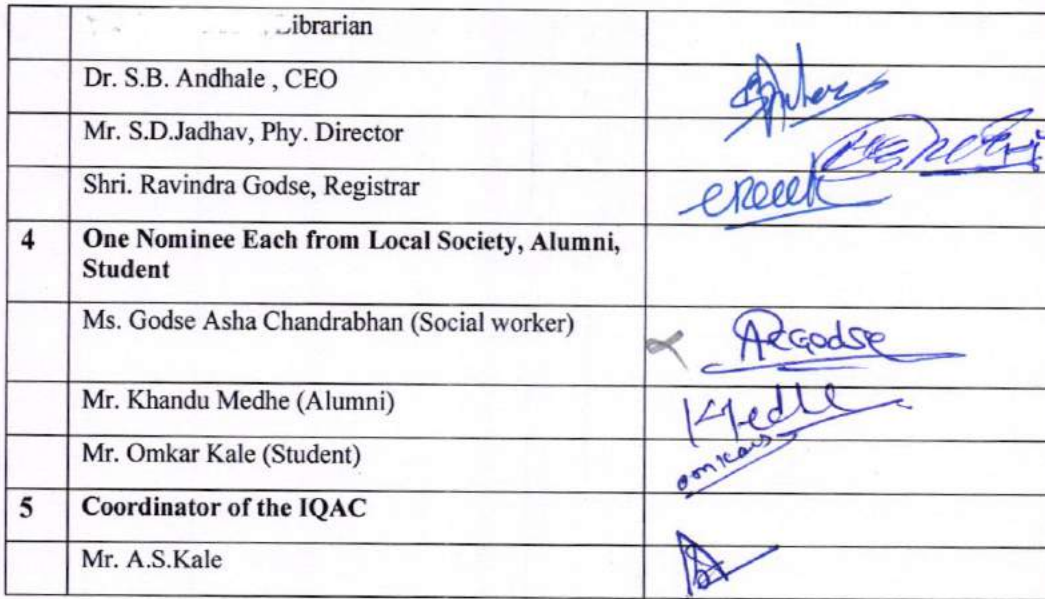 Librarian
Dr. S.B. Andhale , CEO
Mr. S.D.Jadhav, Phy. Director
Shri. Ravindra Godse, Registrar
4 One Nominee Each from Local Society, Alumni,
Student
Ms. Godse Asha Chandrabhan (Social worker)
AcGodse
Mr. Khandu Medhe (Alumni)
KMedhe
Mr. Omkar Kale (Student)
omkar
5 Coordinator of the IQAC
Mr. A.S.Kale